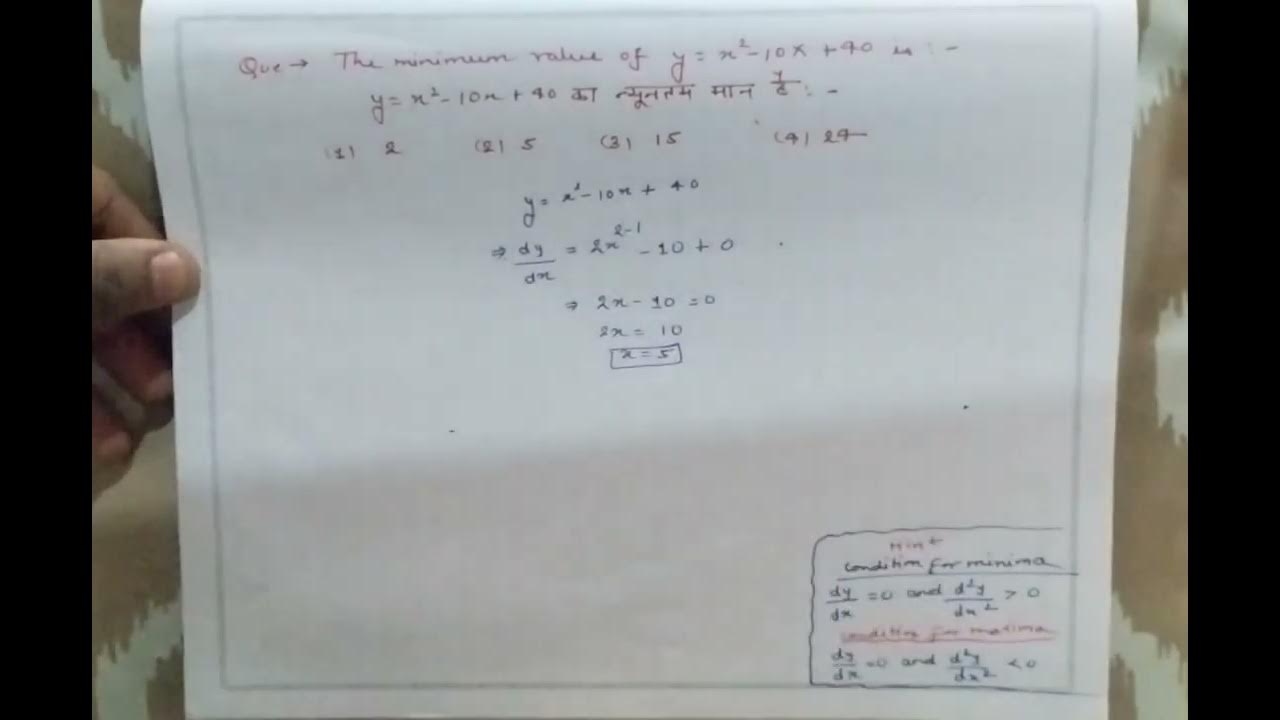 Que → The minimum value of y = x² - 10x + 40 is : -
y = x² - 10x + 40 का न्यूनतम मान है : -
(1) 2 (2) 5 (3) 15 (4) 24
y = x² - 10x + 40
⇒ dy/dx = 2x²⁻¹ - 10 + 0
⇒ 2x - 10 = 0
2x = 10
x = 5
Hint
condition for minima
dy/dx = 0 and d²y/dx² > 0
condition for maxima
dy/dx = 0 and d²y/dx² < 0